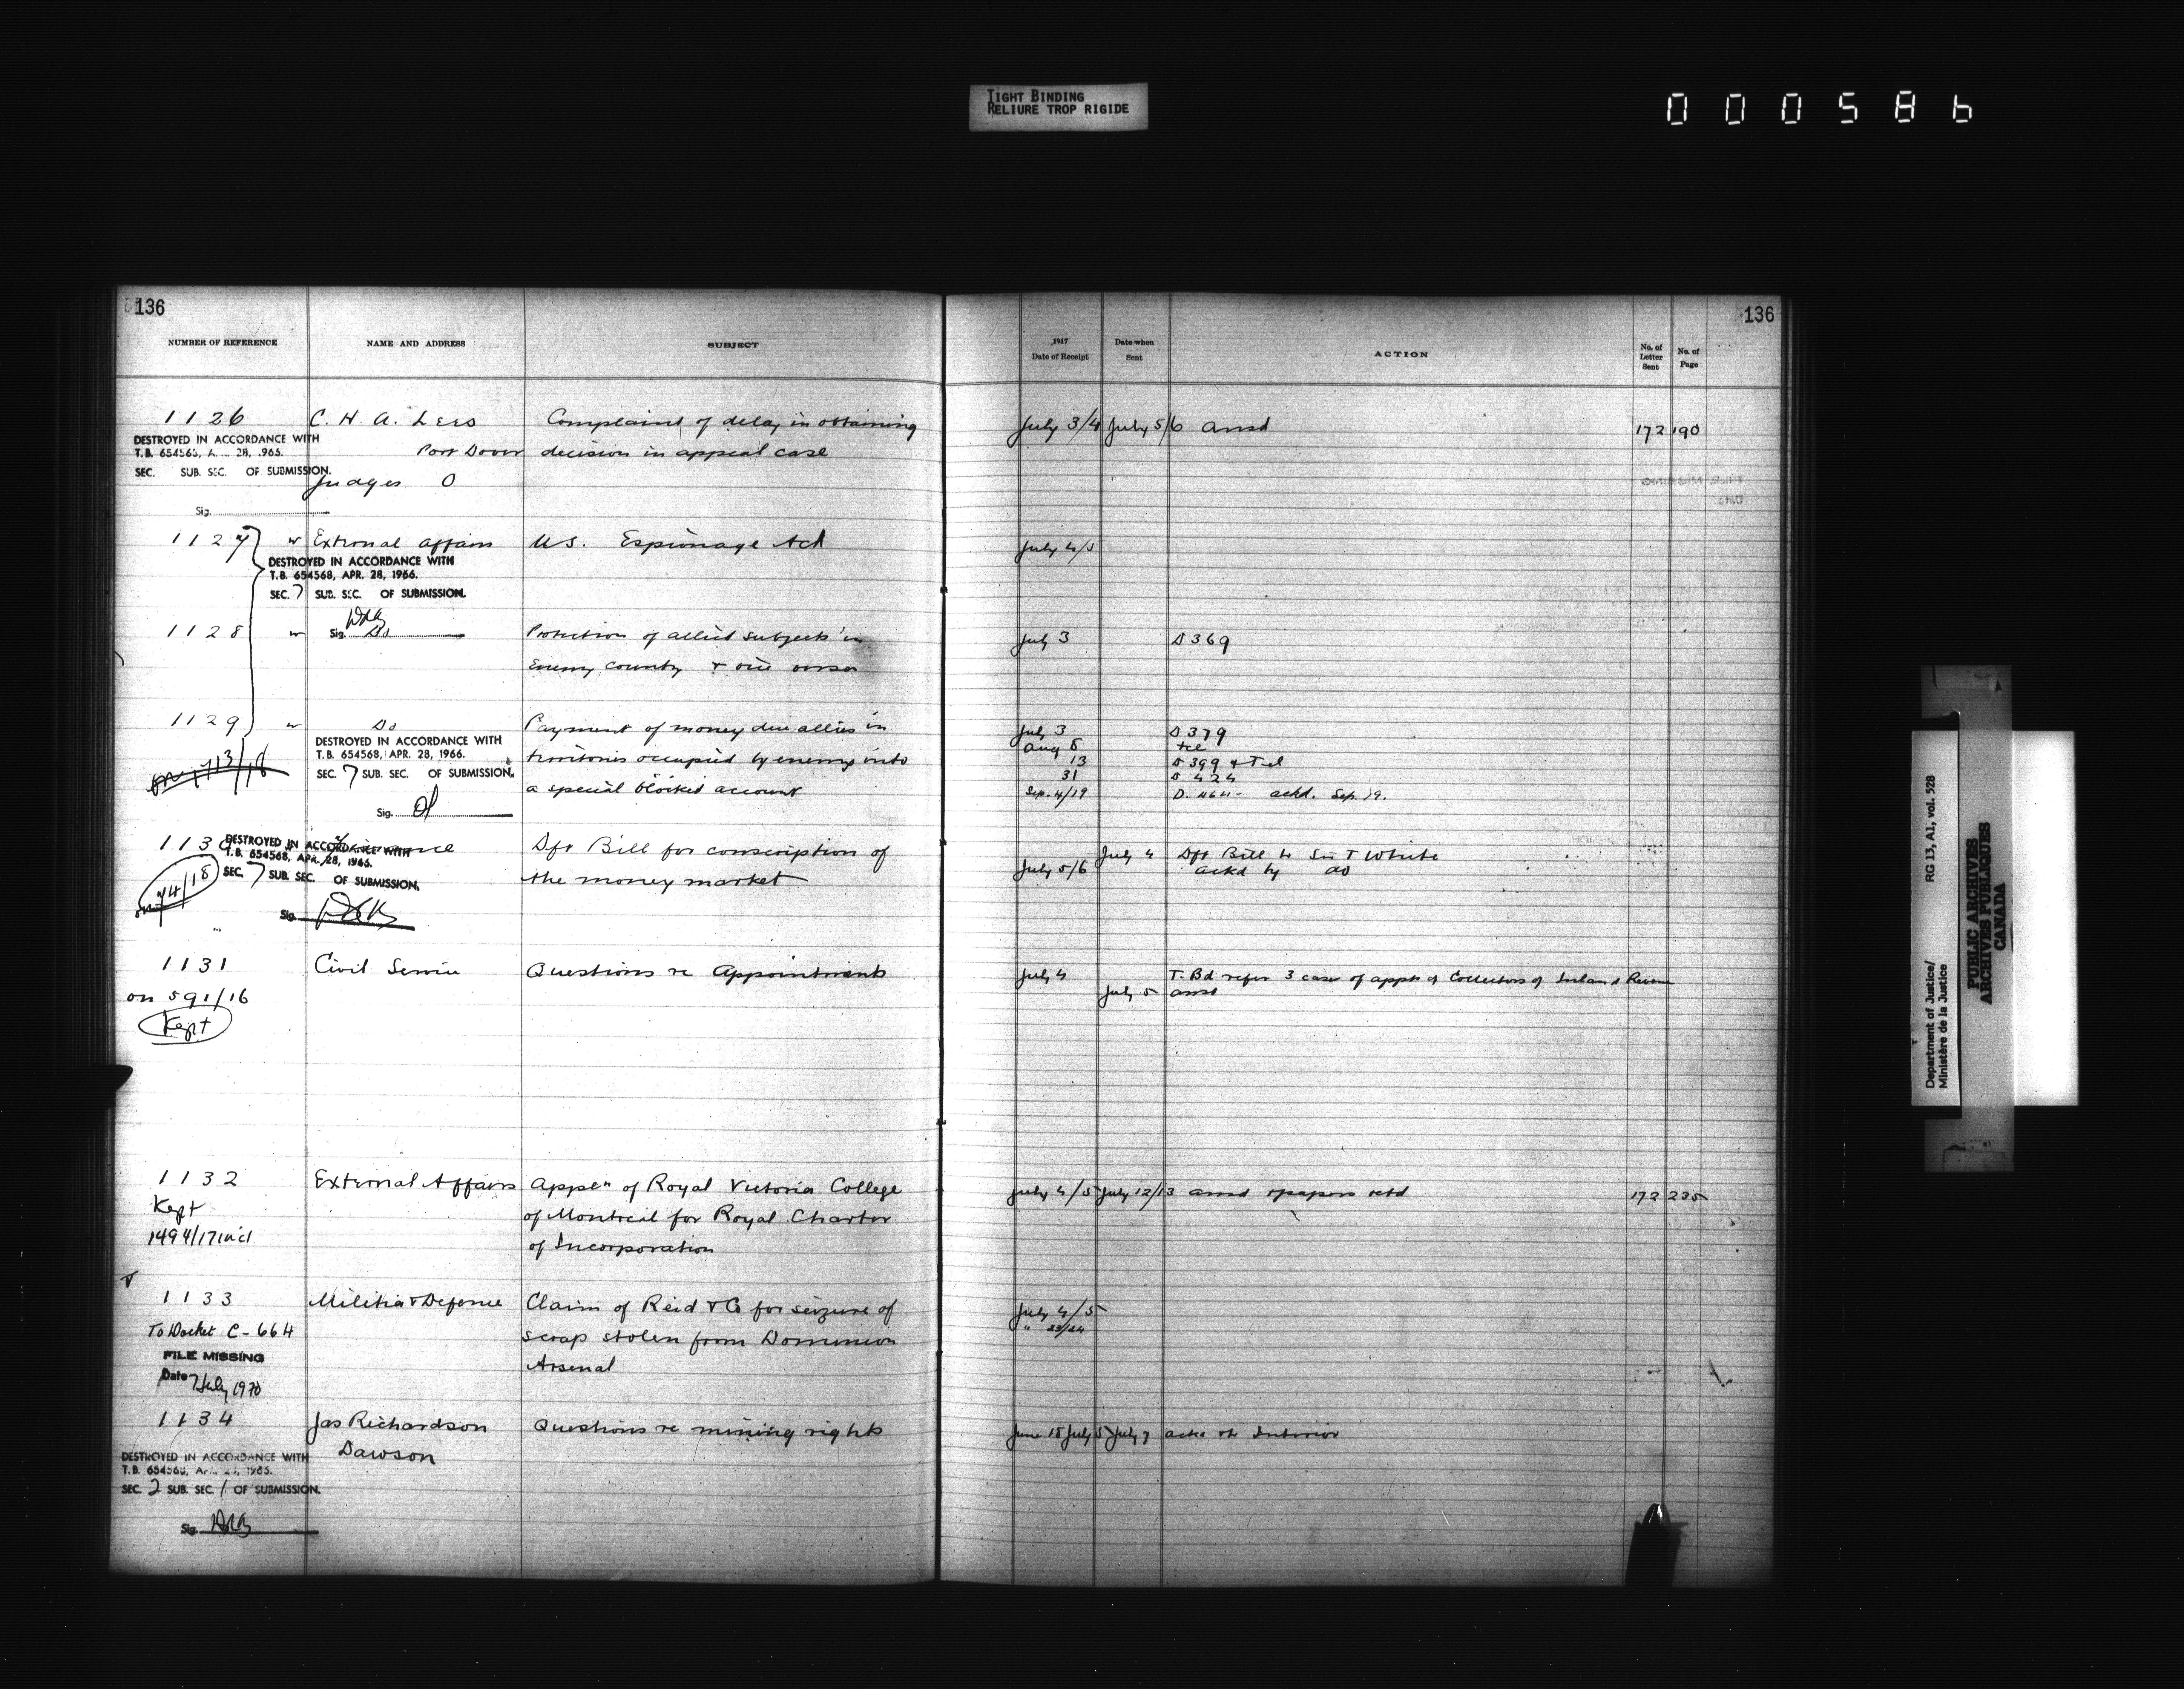 TIGHT BINDING
RELIURE TROP RIGIDE
000586
136
NUMBER OF REFERENCE NAME AND ADDRESS SUBJECT
1126 C. H. A. Lees Complaint of delay in obtaining
DESTROYED IN ACCORDANCE WITH
Port Dover decision in appeal case
SEC. SUB. SEC. OF SUBMISSION.
Judges O
Sig.
1127 w External Affairs U.S. Espionage Act
DESTROYED IN ACCORDANCE WITH
T.B. 654568, APR. 28, 1966.
SEC. 7 SUB. SEC. OF SUBMISSION.
1128 w Sig. Do Protection of allied subjects in
Enemy country & vice versa
1129 w Do Payment of money due allies in
DESTROYED IN ACCORDANCE WITH
T.B. 654568, APR. 28, 1966. territories occupied by enemy into
SEC. 7 SUB. SEC. OF SUBMISSION.
a special blocked account
Sig.
1130 Finance Dft Bill for conscription of
DESTROYED IN ACCORDANCE WITH
T.B. 654568, APR. 28, 1966.
74/18 SEC. 7 SUB. SEC. OF SUBMISSION. the money market
Sig.
1131 Civil Service Questions re Appointments
on 591/16
Kept
1132 External Affairs Appln of Royal Victoria College
Kept of Montreal for Royal Charter
1494/17 incl of Incorporation
1133 Militia & Defence Claim of Reid & Co for seizure of
To Docket C-664 scrap stolen from Dominion
FILE MISSING Arsenal
Date 7 July 1970
1134 Jas Richardson Questions re mining rights
Dawson
DESTROYED IN ACCORDANCE WITH
SEC. 2 SUB. SEC. 1 OF SUBMISSION.
Sig.
136
1917 Date of Receipt Date when Sent ACTION No. of Letter Sent No. of Page
July 3/4 July 5/6 ansd 172 190
July 4/5
July 3 D 369
July 3 D 379
Aug 8 tel
13 D 399 & Tel
31 D 424
Sep. 4/19 D. 464- ackd. Sep. 19.
July 4 Dft Bill to Sir T White
July 5/6 ackd by do
July 4 T. Bd refer 3 case of appt of Collectors of Inland Revenue
July 5 ansd
July 4/5 July 12/13 ansd & papers retd 172 235
July 4/5
" 23/24
June 18 July 5 July 7 Interior
Department of Justice/
Ministère de la Justice
RG 13, A1, vol. 528
PUBLIC ARCHIVES
ARCHIVES PUBLIQUES
CANADA